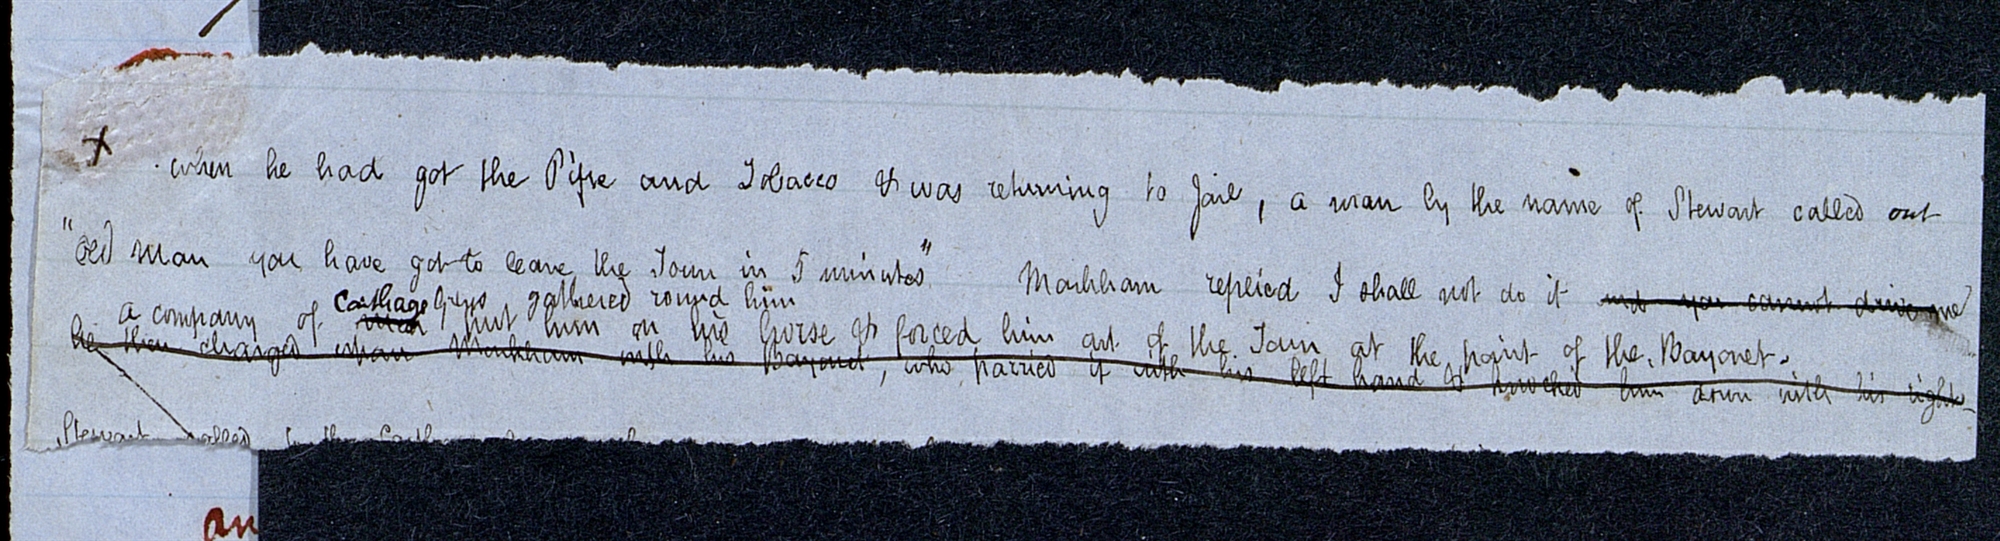 x when he had got the Pipe and Tobacco & was returning to Jail, a man by the name of Stewart called out
"old man you have got to leave the Town in 5 minutes" Markham replied I shall not do it and you cannot drive me
a company of men Carthage Greys gathered round him
put him on his horse & forced him out of the Town at the point of the Bayonet.
he then charged upon Markham with his Bayonet, who parried it with his left hand & knocked him down with his right
Stewart called
an